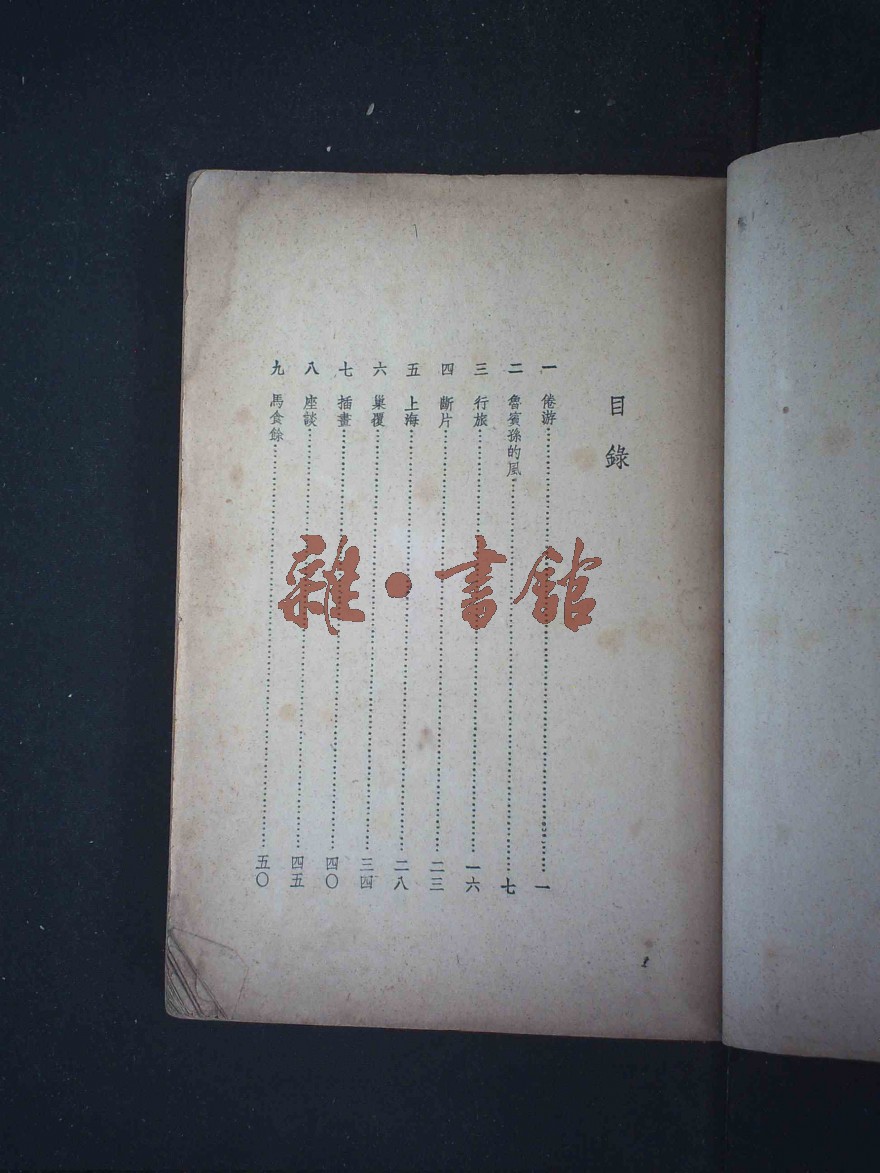 目錄
一 倦游……一
二 魯賓孫的風……七
三 行旅……一六
四 斷片……二三
五 上海……二八
六 巢覆……三四
七 插畫……四〇
八 座談……四五
九 馬食餘……五〇
1
雜·書館